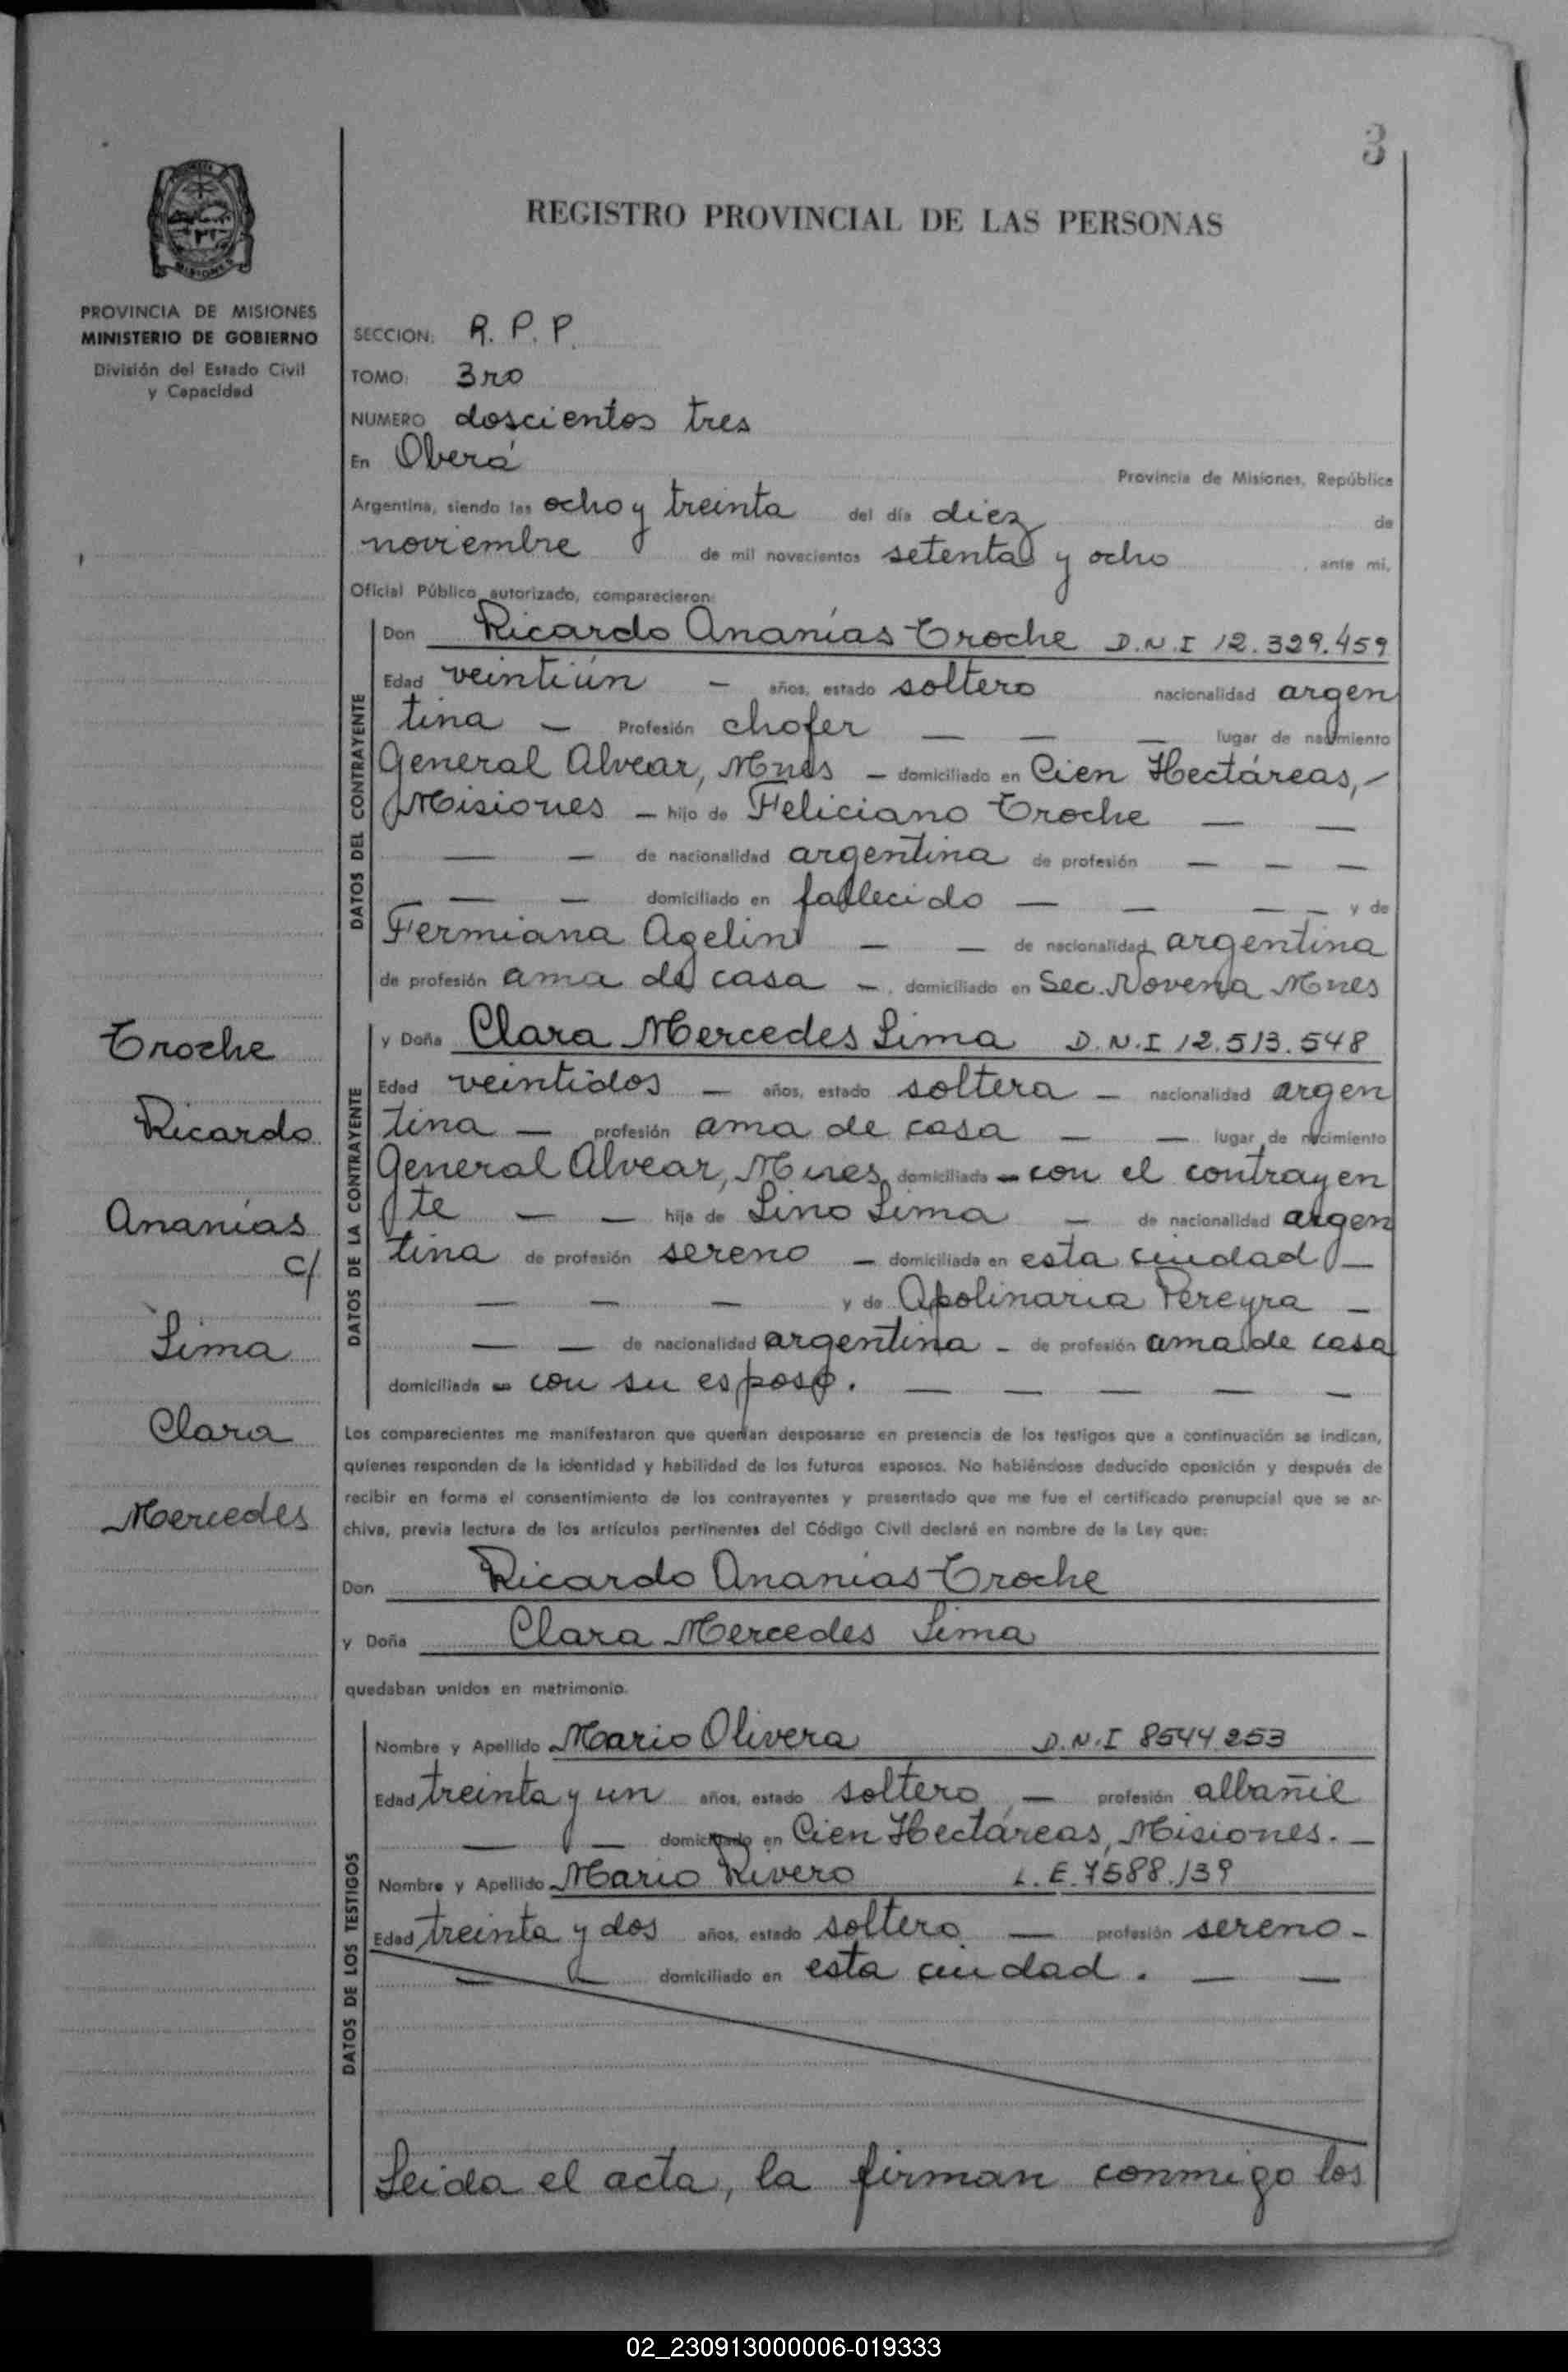 3
REGISTRO PROVINCIAL DE LAS PERSONAS
PROVINCIA DE MISIONES
MINISTERIO DE GOBIERNO
División del Estado Civil
y Capacidad
SECCION: R. P. P.
TOMO: 3ro
NUMERO doscientos tres
En Oberá Provincia de Misiones, República
Argentina, siendo las ocho y treinta del día diez de
noviembre de mil novecientos setenta y ocho, ante mí,
Oficial Público autorizado, comparecieron:
DATOS DEL CONTRAYENTE
Don Ricardo Ananías Troche D.N.I 12.329.459
Edad veintiún - años, estado soltero nacionalidad argen
tina - Profesión chofer — — — lugar de nacimiento
General Alvear, Mnes - domiciliado en Cien Hectáreas, -
Misiones - hijo de Feliciano Troche — —
— — de nacionalidad argentina de profesión — — —
— — domiciliado en fallecido — — — — y de
Fermiana Agelin — — de nacionalidad argentina
de profesión ama de casa -. domiciliado en Sec. Novena Mnes
DATOS DE LA CONTRAYENTE
y Doña Clara Mercedes Lima D.N.I 12.513.548
Edad veintidos - años, estado soltera - nacionalidad argen
tina - profesión ama de casa — — lugar de nacimiento
General Alvear, Mnes, domiciliada - con el contrayen
te — — hija de Lino Lima - de nacionalidad argen
tina de profesión sereno - domiciliada en esta ciudad —
— — — y de Apolinaria Pereyra -
— — de nacionalidad argentina - de profesión ama de casa
domiciliada con su esposo. — — — — —
Troche
Ricardo
Ananías
c/
Lima
Clara
Mercedes
Los comparecientes me manifestaron que querían desposarse en presencia de los testigos que a continuación se indican,
quienes responden de la identidad y habilidad de los futuros esposos. No habiéndose deducido oposición y después de
recibir en forma el consentimiento de los contrayentes y presentado que me fue el certificado prenupcial que se ar-
chiva, previa lectura de los artículos pertinentes del Código Civil declaré en nombre de la Ley que:
Don Ricardo Ananias Troche
y Doña Clara Mercedes Lima
quedaban unidos en matrimonio.
DATOS DE LOS TESTIGOS
Nombre y Apellido Mario Olivera D.N.I 8544.253
Edad treinta y un años, estado soltero, — profesión albañil
— — domiciliado en Cien Hectáreas, Misiones. —
Nombre y Apellido Mario Rivero L.E. 7588.139
Edad treinta y dos años, estado soltero — profesión sereno -
— domiciliado en esta ciudad. — —
Leida el acta, la firman conmigo los
02_230913000006-019333